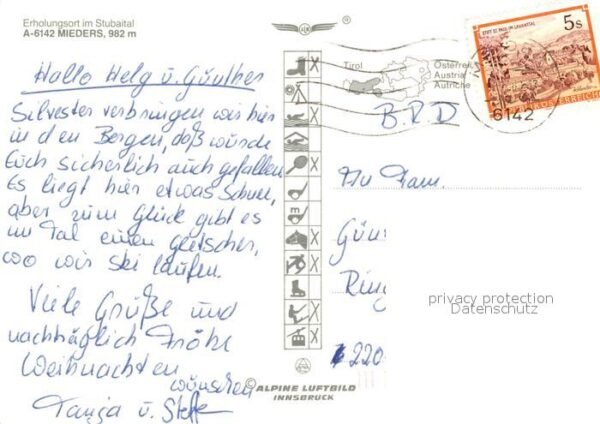 Erholungsort im Stubaital
A-6142 MIEDERS, 982 m
Hallo Helg u. Günther
Silvester verbringen wir hier
in den Bergen, daß würde
Euch sicherlich auch gefallen
Es liegt hier etwas Schnee,
aber zum Glück gibt es
im Tal einen gletscher,
wo wir Ski laufen.
Viele Grüße und
nachträglich Frohe
Weihnachten
wünschen
Tanja u. Steffe
Tirol
Österreich
Austria
Autriche
m
©ALPINE LUFTBILD
INNSBRUCK
STIFT ST. PAUL IM LAVANTTAL
5s
REPUBLIK ÖSTERREICH
6142
B.R.D
An Fam.
Gün
Ring
220
privacy protection
Datenschutz